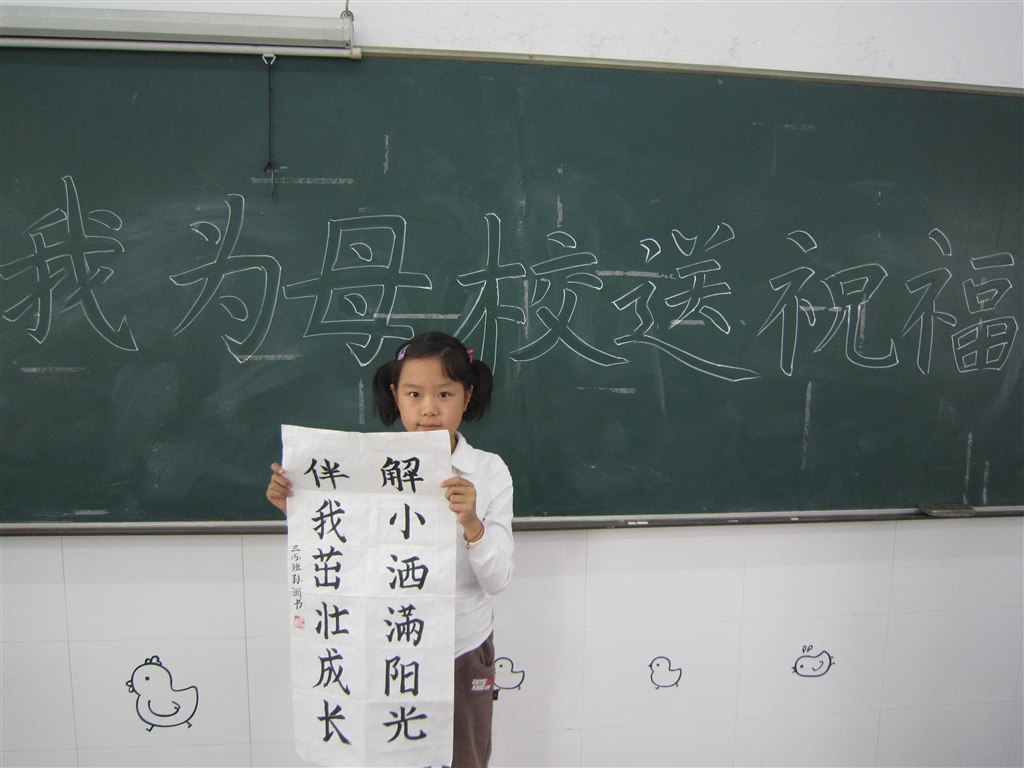 我为母校送祝福
解小洒满阳光
伴我茁壮成长
三(5)班孙澜书